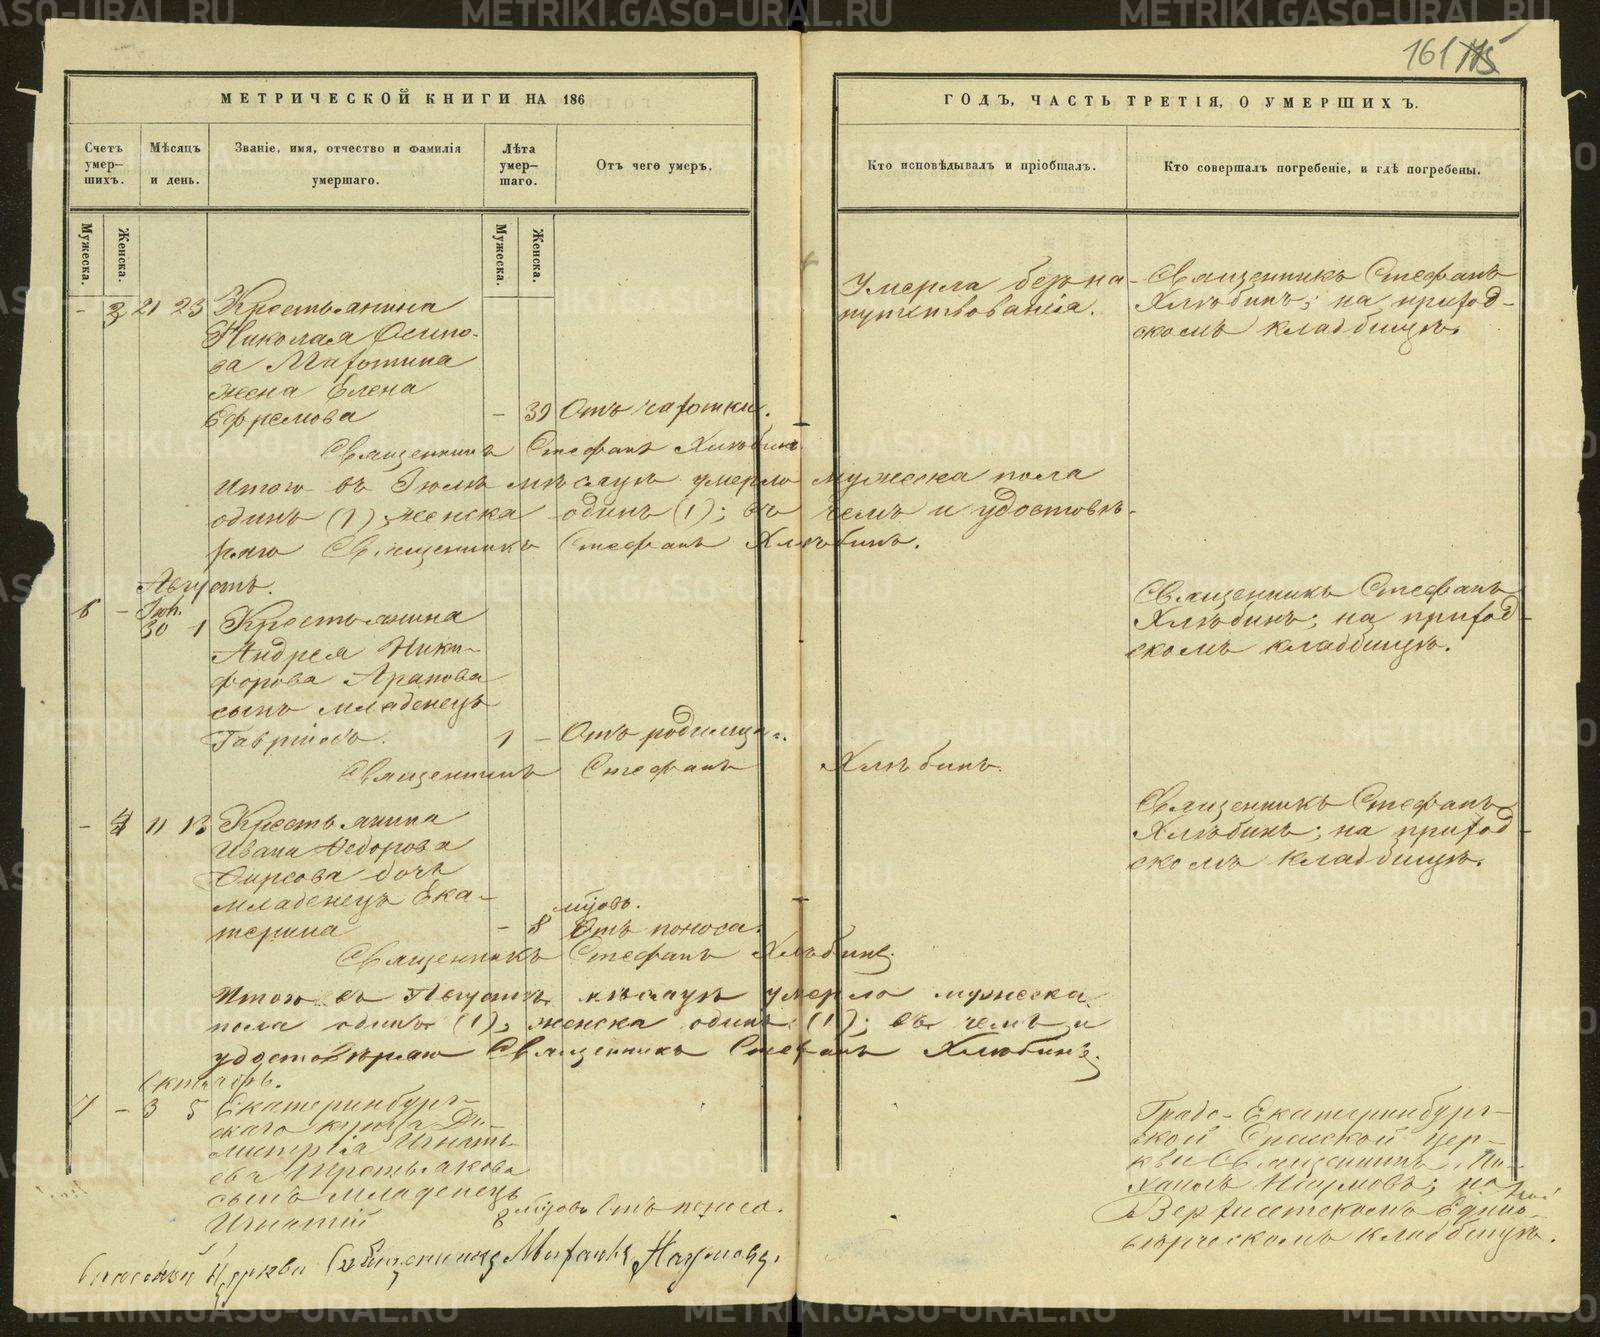 161 115
МЕТРИЧЕСКОЙ КНИГИ НА 186
ГОДЪ, ЧАСТЬ ТРЕТІЯ, О УМЕРШИХЪ.
Счетъ умер-шихъ.
Мѣсяцъ и день.
Званіе, имя, отчество и фамилія умершаго.
Лѣта умер-шаго.
Отъ чего умеръ.
Кто исповѣдывалъ и пріобщалъ.
Кто совершалъ погребеніе, и гдѣ погребены.
Мужеска.
Женска.
Мужеска.
Женска.
- 3 21 23 Крестьянина
Николая Осипо-
ва
жена Елена
Ефремова - 39 Отъ чахотки.
Умерла безъ на-
путствованія.
Священникъ Стефанъ
Хлѣбинъ; на приход-
скомъ кладбищѣ.
Священникъ Стефанъ Хлѣбинъ
Итого въ Іюлѣ мѣсяцѣ умерло мужеска пола
одинъ (1), женска одинъ (1); въ чемъ и удостовѣ-
ряю Священникъ Стефанъ Хлѣбинъ.
Августъ.
6 - Іюл.
30 1 Крестьянина
Андрея Ники-
форова Арапова
сынъ младенецъ
Гавріилъ. 1 - Отъ родимца.
Священникъ Стефанъ
Хлѣбинъ; на приход-
скомъ кладбищѣ.
Священникъ Стефанъ Хлѣбинъ.
- 4 11 13 Крестьянина
Ивана Ѳедорова
Фирсова дочь
младенецъ Ека-
терина - 8 мцовъ.
Отъ поноса.
Священникъ Стефанъ
Хлѣбинъ; на приход-
скомъ кладбищѣ.
Священникъ Стефанъ Хлѣбинъ.
Итого въ Августѣ мѣсяцѣ умерло мужеска
пола одинъ (1), женска одинъ (1); въ чемъ и
удостовѣряю Священникъ Стефанъ Хлѣбинъ.
Октябрь.
7 - 3 5 Екатеринбург-
скаго купца Ди-
митрія Игнать-
ева Третьякова
сынъ младенецъ
Игнатій 8 мцовъ Отъ поноса.
Градо-Екатеринбург-
ской Спасской цер-
кви Священникъ Ми-
хаилъ Наумовъ; на
Верхисетскомъ Едино-
вѣрческомъ кладбищѣ.
Спасской Церкви Священникъ Михаилъ Наумовъ.
METRIKI.GASO-URAL.RU